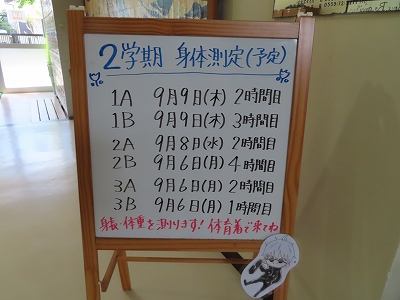 2学期 身体測定(予定)
1A 9月9日(木) 2時間目
1B 9月9日(木) 3時間目
2A 9月8日(水) 2時間目
2B 9月6日(月) 4時間目
3A 9月6日(月) 2時間目
3B 9月6日(月) 1時間目
身長・体重を測ります! 体育着で来てね